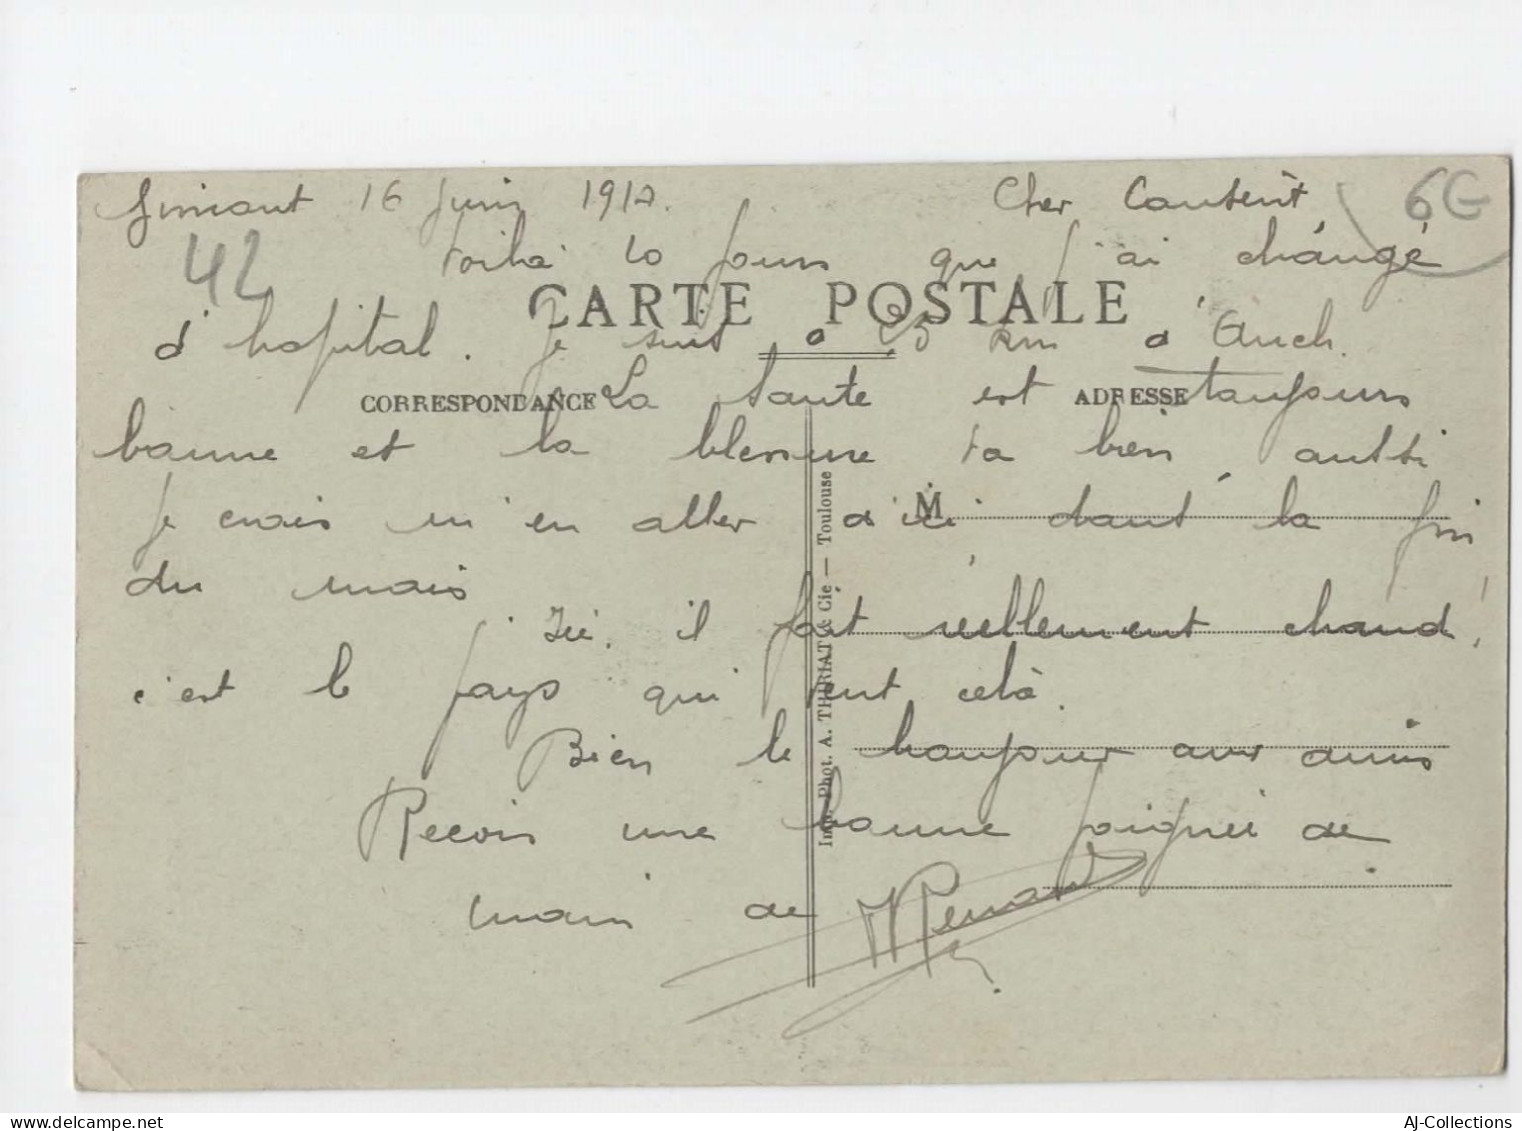 Gimont 16 Juin 1917. Cher
6G
42
Voilà 10 jours que j'ai changé
CARTE POSTALE
d'hopital. Je suis à 25 km d'Auch.
CORRESPONDANCE
ADRESSE
La santé est toujours
bonne et la blessure va bien, aussi
M
je crois m'en aller d'ici dans la fin
du mois
Ici, il fait réellement chaud,
c'est le pays qui veut celà.
Bien le bonjour aux amis
Reçois une bonne poignée de
main de Renard
Imp. Phot. A. THIRIAT & Cie — Toulouse
AJ-Collections